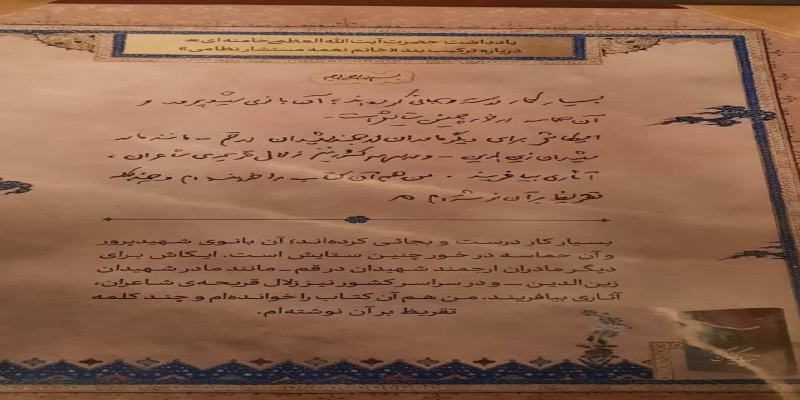 یادداشت حضرت آیت الله العظمی خامنه‌ای
درباره ترکیب بند «خانم نغمه مستشار نظامی»
بسم الله الرحمن الرحیم
بسیار کار درست و بجائی کرده‌اند؛ آن بانوی شهیدپرور و
آن حماسه در خور چنین ستایش است.
ایکاش برای دیگر مادران ارجمند شهیدان در قم ـ مانند مادر
شهیدان زین‌الدین ـ و در سراسر کشور نیز زلال قریحه‌ی شاعران،
آثاری بیافریند. من هم آن کتاب را خوانده‌ام و چند کلمه
تقریظ بر آن نوشته‌ام
بسیار کار درست و بجائی کرده‌اند؛ آن بانوی شهیدپرور
و آن حماسه در خور چنین ستایش است. ایکاش برای
دیگر مادران ارجمند شهیدان در قم ـ مانند مادر شهیدان
زین‌الدین ـ و در سراسر کشور نیز زلال قریحه‌ی شاعران،
آثاری بیافریند. من هم آن کتاب را خوانده‌ام و چند کلمه
تقریظ بر آن نوشته‌ام.